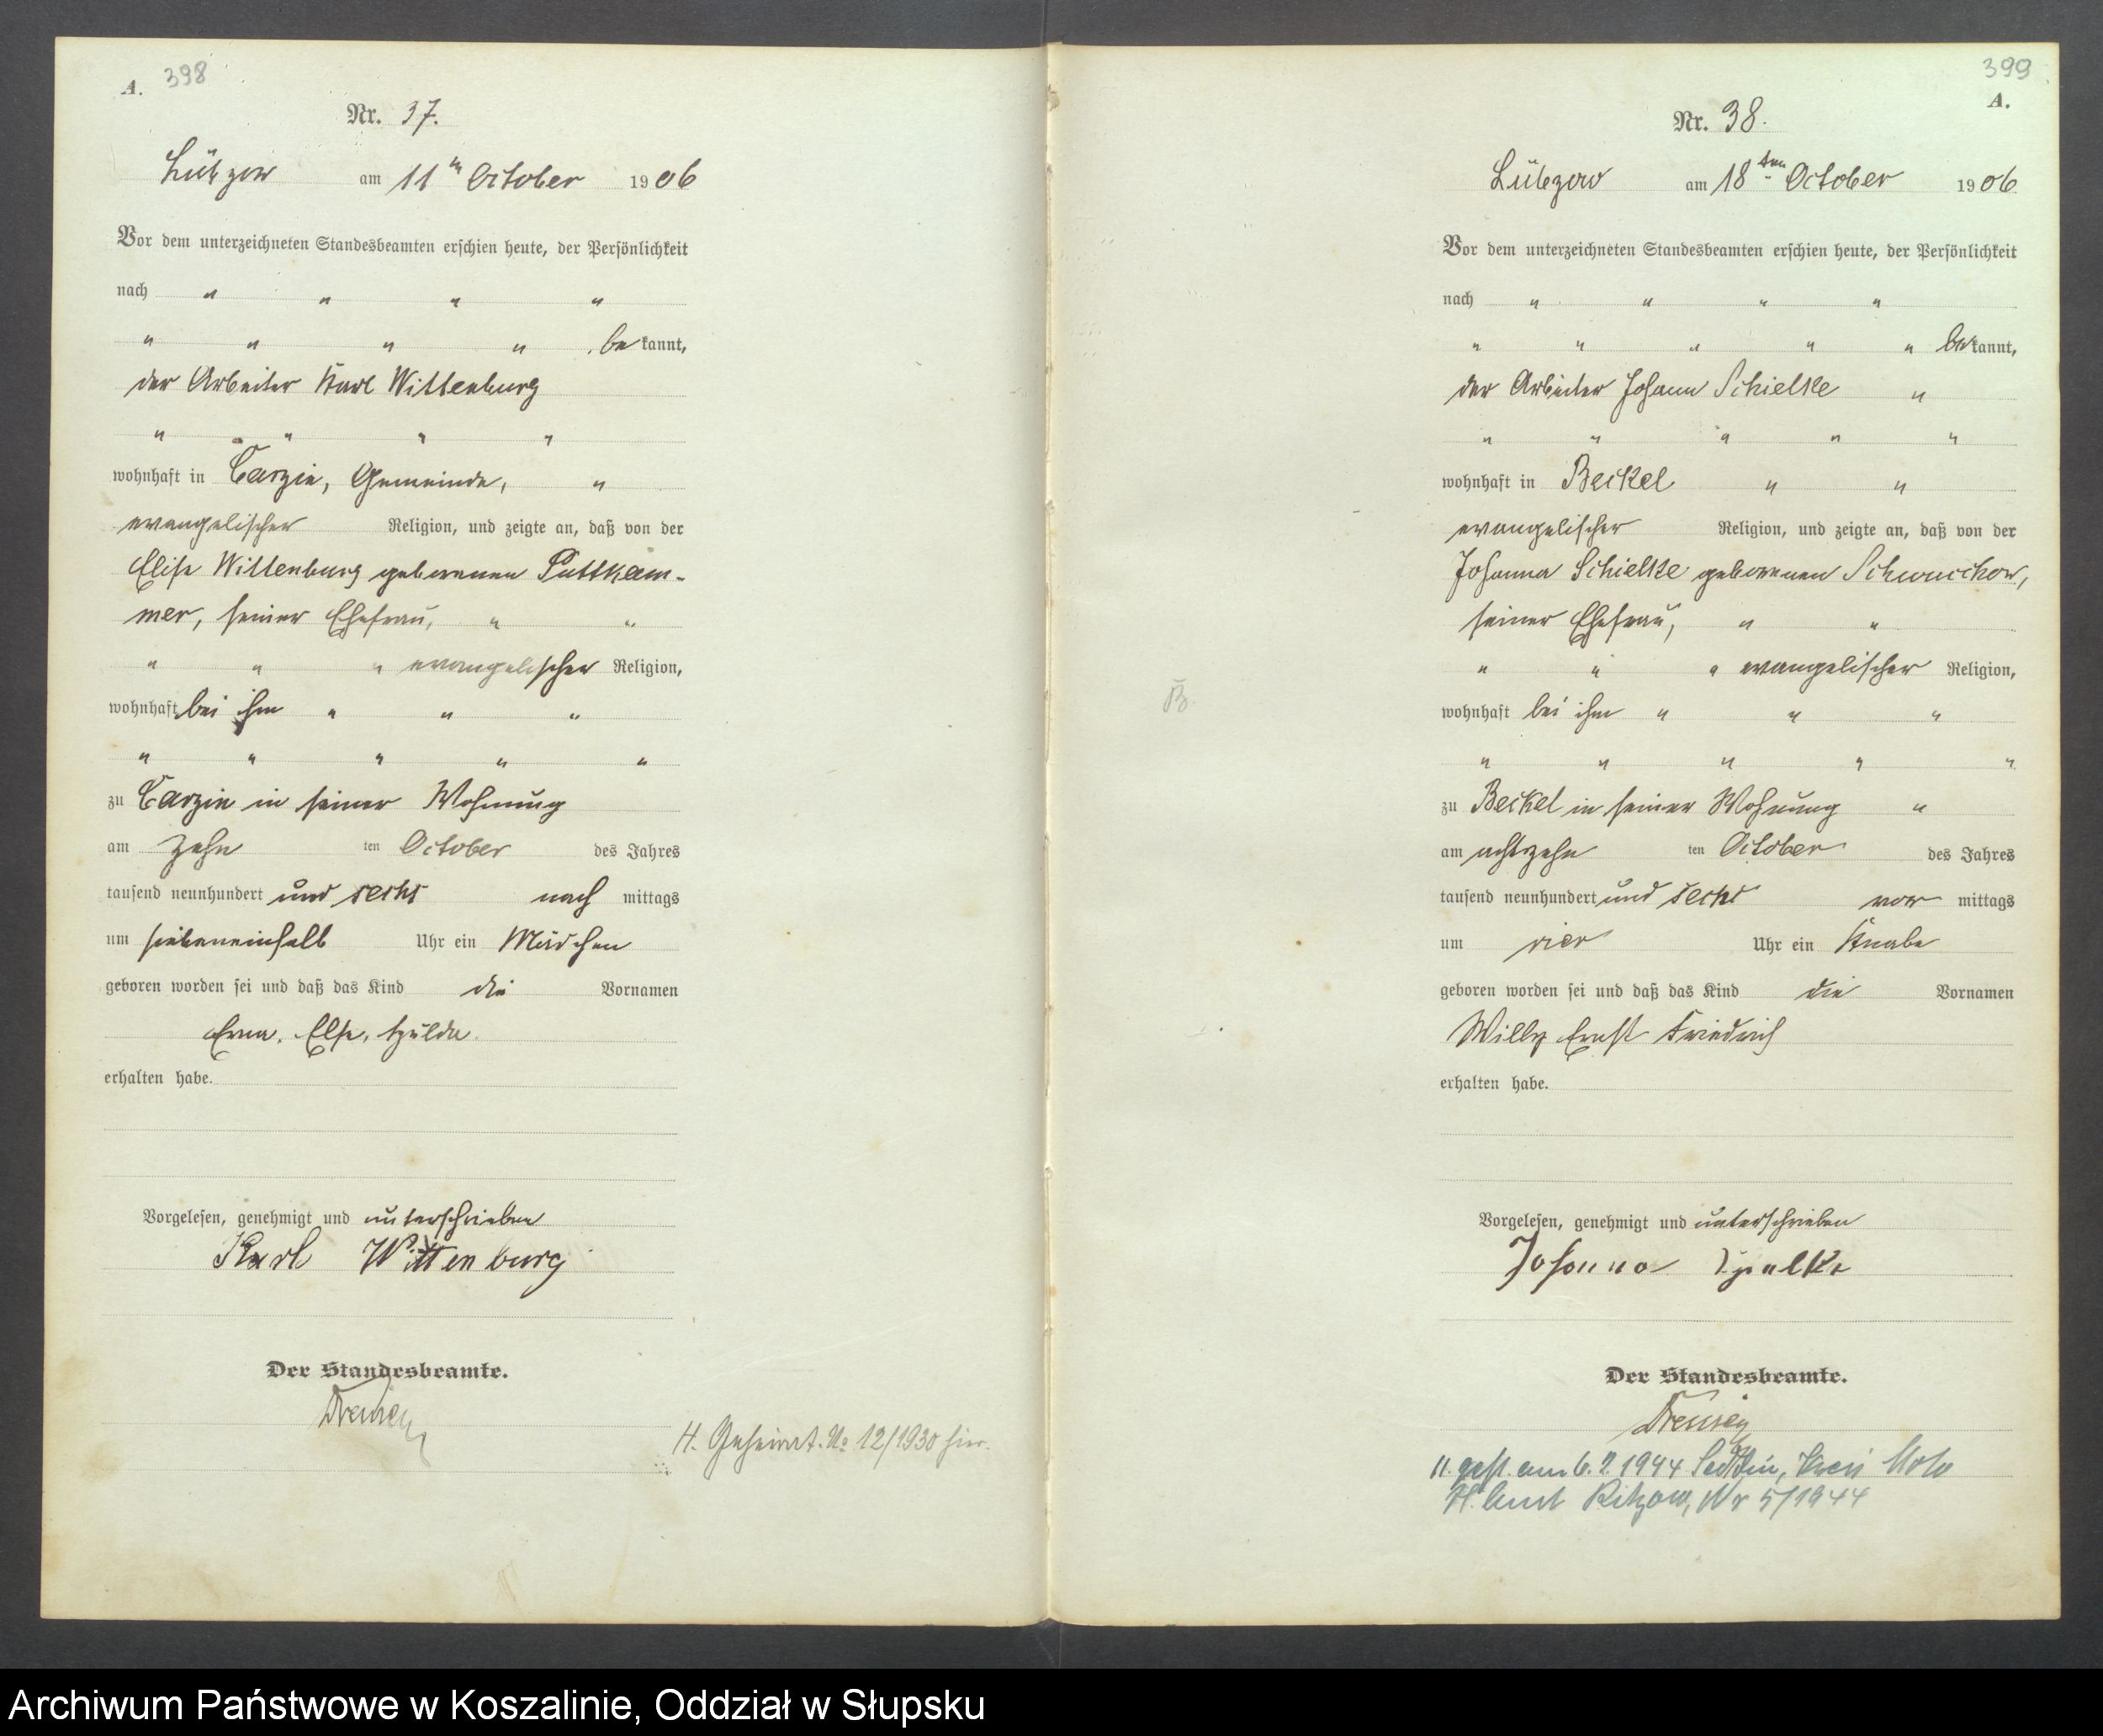 A. 398
Nr. 37.
Lübzow am 11ten October 1906
Vor dem unterzeichneten Standesbeamten erschien heute, der Persönlichkeit
nach " " " "
" " " " bekannt,
der Arbeiter Karl Wittenburg
" " " "
wohnhaft in Carzin, Gemeinde, "
evangelischer Religion, und zeigte an, daß von der
Elise Wittenburg geborenen Puttkam-
mer, seiner Ehefrau, " "
" " " evangelischer Religion,
wohnhaft bei ihm " " "
" " " " "
zu Carzin in seiner Wohnung
am zehn ten October des Jahres
tausend neunhundert und sechs nach mittags
um siebeneinhalb Uhr ein Mädchen
geboren worden sei und daß das Kind die Vornamen
Erna, Else, Hulda
erhalten habe.
Vorgelesen, genehmigt und unterschrieben
Karl Wittenburg
Der Standesbeamte.
H. Geheirat. No 12/1930 hier.
399
A.
Nr. 38.
Lübzow am 18ten October 1906
Vor dem unterzeichneten Standesbeamten erschien heute, der Persönlichkeit
nach " " " "
" " " " " bekannt,
der Arbeiter Johann Schielke "
" " " " "
wohnhaft in Beckel " "
evangelischer Religion, und zeigte an, daß von der
Johanna Schielke geborenen Schwuchow,
seiner Ehefrau, " "
" " " evangelischer Religion,
wohnhaft bei ihm " " "
" " " " "
zu Beckel in seiner Wohnung "
am achtzehn ten October des Jahres
tausend neunhundert und sechs vor mittags
um vier Uhr ein Knabe
geboren worden sei und daß das Kind die Vornamen
Willy Ernst Friedrich
erhalten habe.
Vorgelesen, genehmigt und unterschrieben
Der Standesbeamte.
gest. am 6.2.1944
Nr 5/1944
Archiwum Państwowe w Koszalinie, Oddział w Słupsku